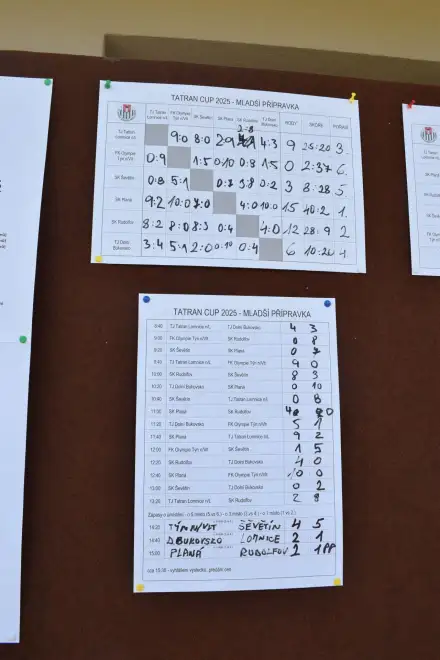 TATRAN CUP 2025 - MLADŠÍ PŘÍPRAVKA
TJ Tatran Lomnice n/L FK Olympie Týn n/Vlt SK Ševětín SK Planá SK Rudolfov TJ Dolní Bukovsko BODY SKÓRE POŘADÍ
TJ Tatran Lomnice n/L 9:0 8:0 2:9 2:8 4:3 9 25:20 3.
FK Olympie Týn n/Vlt 0:9 1:5 0:10 0:8 1:5 0 2:37 6.
SK Ševětín 0:8 5:1 0:7 3:8 0:2 3 8:28 5
SK Planá 9:2 10:0 7:0 4:0 10:0 15 40:2 1.
SK Rudolfov 8:2 8:0 8:3 0:4 4:0 12 28:9 2
TJ Dolní Bukovsko 3:4 5:1 2:0 0:10 0:4 6 10:20 4
TATRAN CUP 2025 - MLADŠÍ PŘÍPRAVKA
8:40 TJ Tatran Lomnice n/L TJ Dolní Bukovsko 4 3
9:00 FK Olympie Týn n/Vlt SK Rudolfov 0 8
9:20 SK Ševětín SK Planá 0 7
9:40 TJ Tatran Lomnice n/L FK Olympie Týn n/Vlt 9 0
10:00 SK Rudolfov SK Ševětín 8 3
10:20 TJ Dolní Bukovsko SK Planá 0 10
10:40 SK Ševětín TJ Tatran Lomnice n/L 0 8
11:00 SK Planá SK Rudolfov 4 0
11:20 TJ Dolní Bukovsko FK Olympie Týn n/Vlt 5 1
11:40 SK Planá TJ Tatran Lomnice n/L 9 2
12:00 FK Olympie Týn n/Vlt SK Ševětín 1 5
12:20 SK Rudolfov TJ Dolní Bukovsko 4 0
12:40 SK Planá FK Olympie Týn n/Vlt 10 0
13:00 SK Ševětín TJ Dolní Bukovsko 0 2
13:20 TJ Tatran Lomnice n/L SK Rudolfov 2 8
Zápasy o umístění - o 5 místo (5 vs 6.) - o 3 místo (3 vs 4.) - o 1 místo (1 vs 2.)
14:20 TÝN N/VLT ŠEVĚTÍN 4 5
14:40 D.BUKOVSKO LOMNICE 2 1
15:00 PLANÁ RUDOLFOV 2 1PP
cca 15:30 - vyhlášení výsledků, předání cen